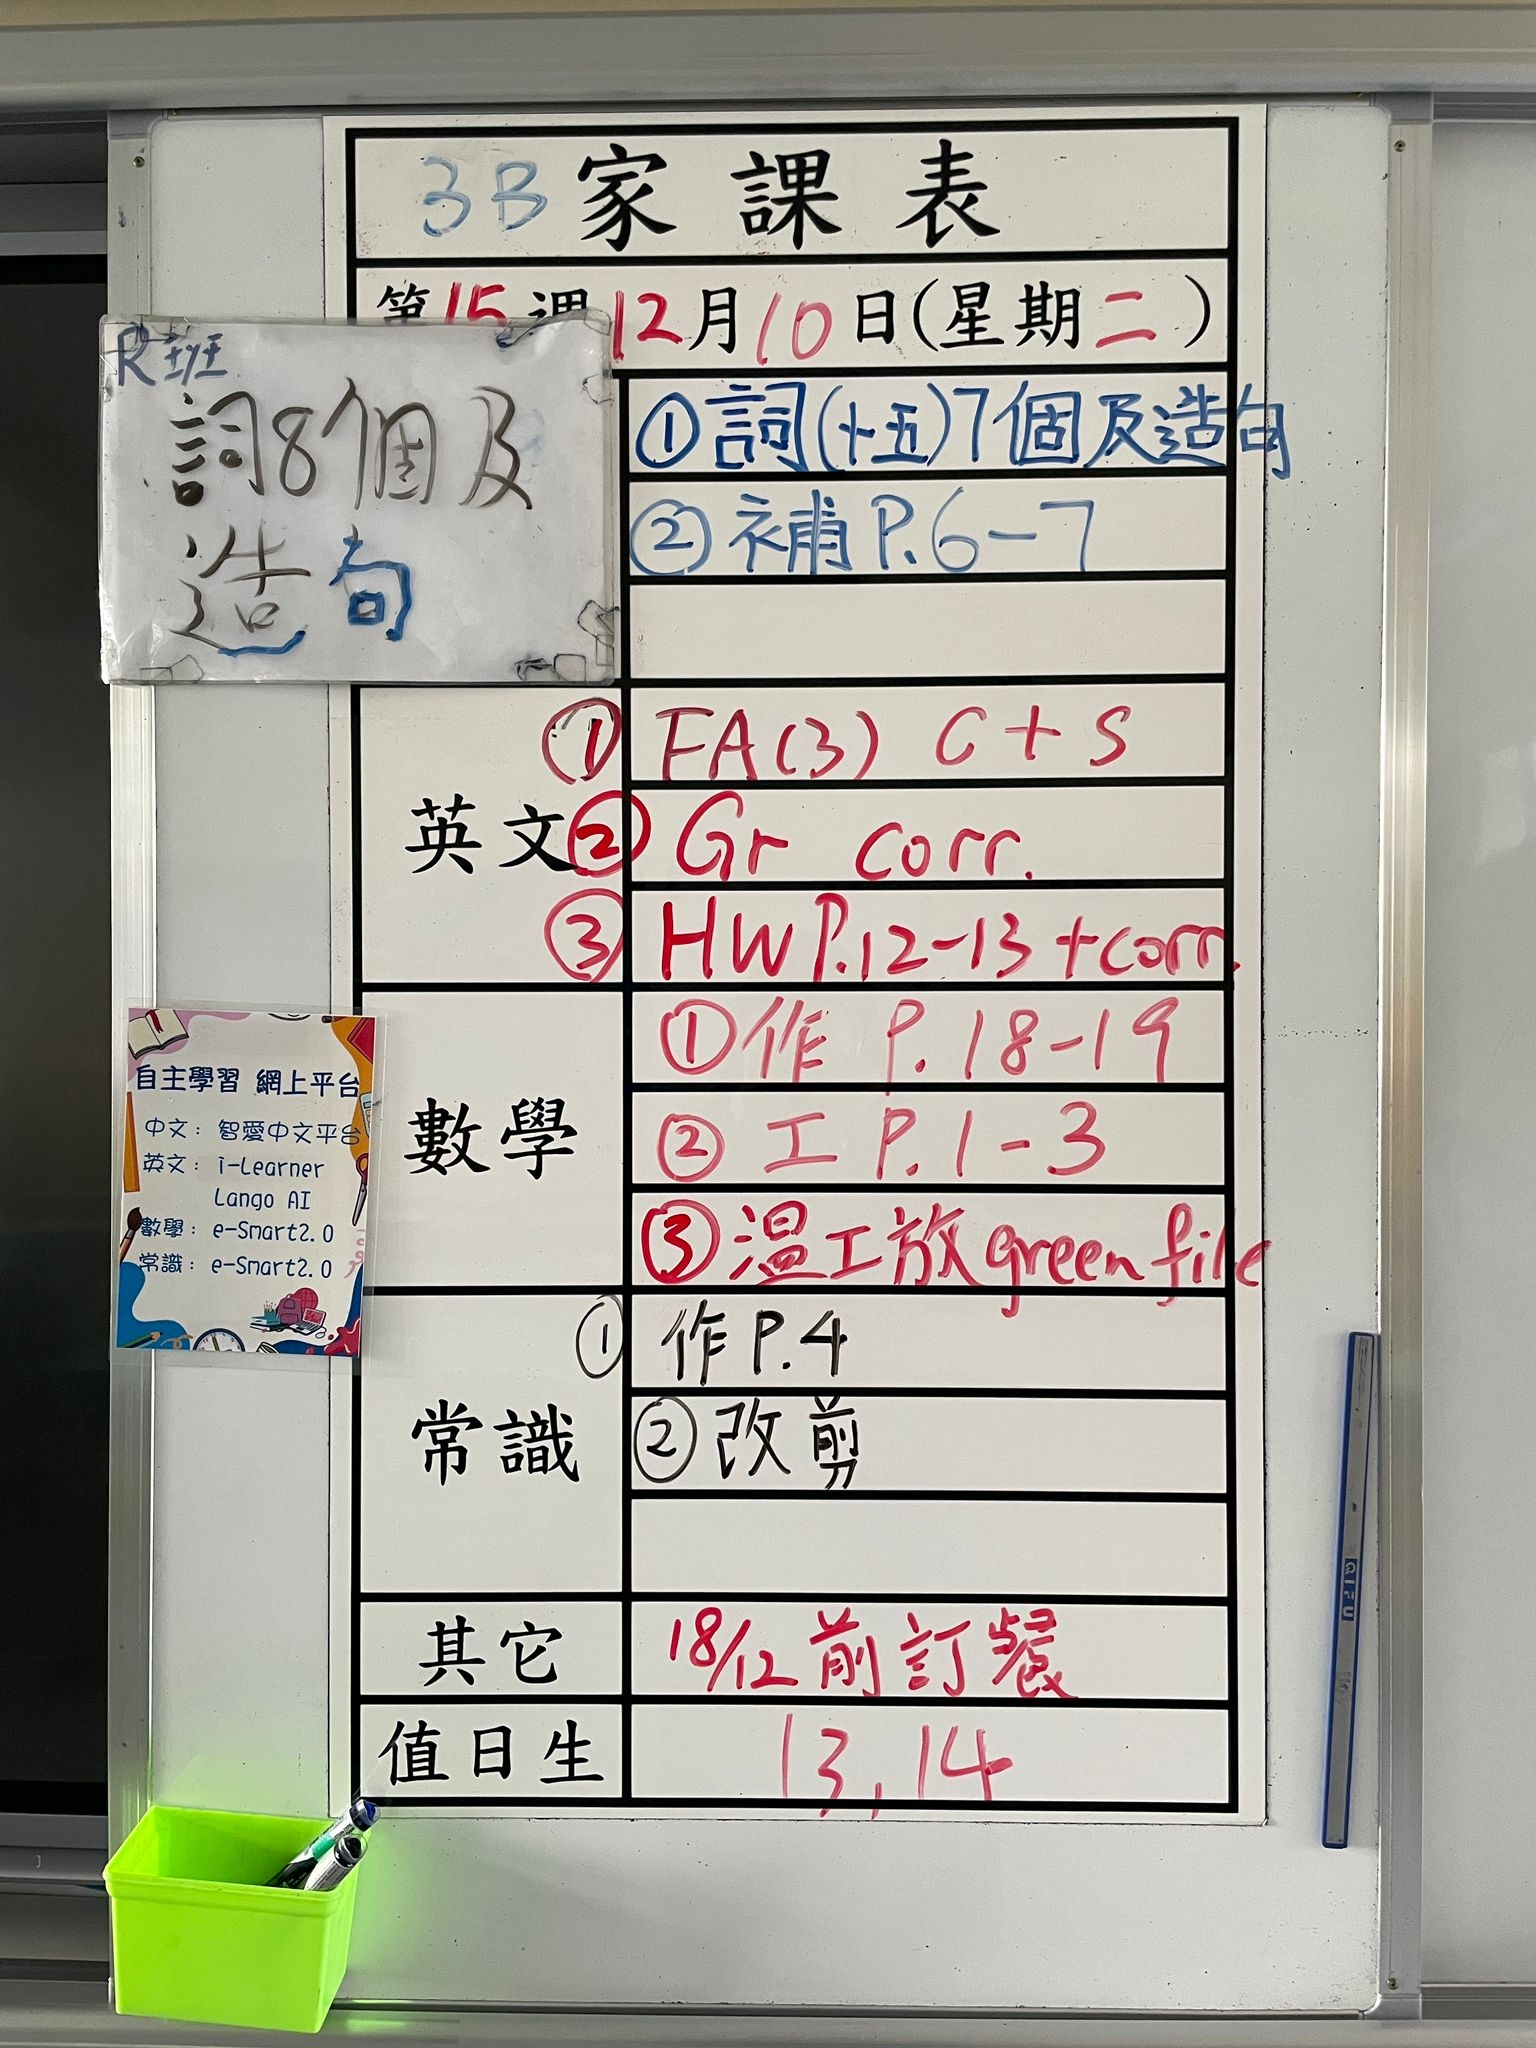 3B 家課表
第15週12月10日(星期二)
R班
詞8個及
造句
①詞(十五)7個及造句
②補P.6-7
英文
① FA(3) C+S
② Gr corr.
③ HW P.12-13+corr.
數學
①作 P.18-19
② 工 P.1-3
③溫工放green file
常識
① 作P.4
②改剪
其它
18/12前訂餐
值日生
13,14
自主學習 網上平台
中文：智愛中文平台
英文：i-Learner
Lango AI
數學：e-Smart2.0
常識：e-Smart2.0
QIFU